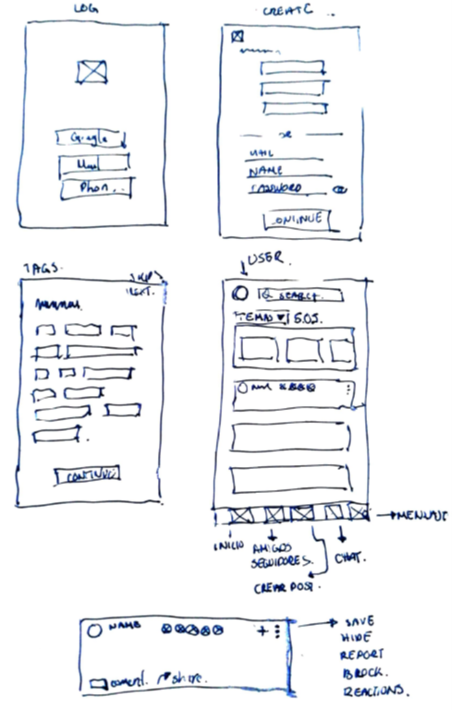 LOG
CREATE ..
Google
Mail
Phon...
or
MAIL
NAME
PASSWORD
CONTINUE
TAGS.
SKIP
NEXT.
CONTINUE
USER.
SEARCH.
TEMAS ▼ S.O.S.
INICIO
AMIGOS
SEGUIDORES.
CREAR POST.
CHAT.
MENSAJE
NAME
+
coment. share.
SAVE
HIDE
REPORT
BLOCK.
REACTIONS.